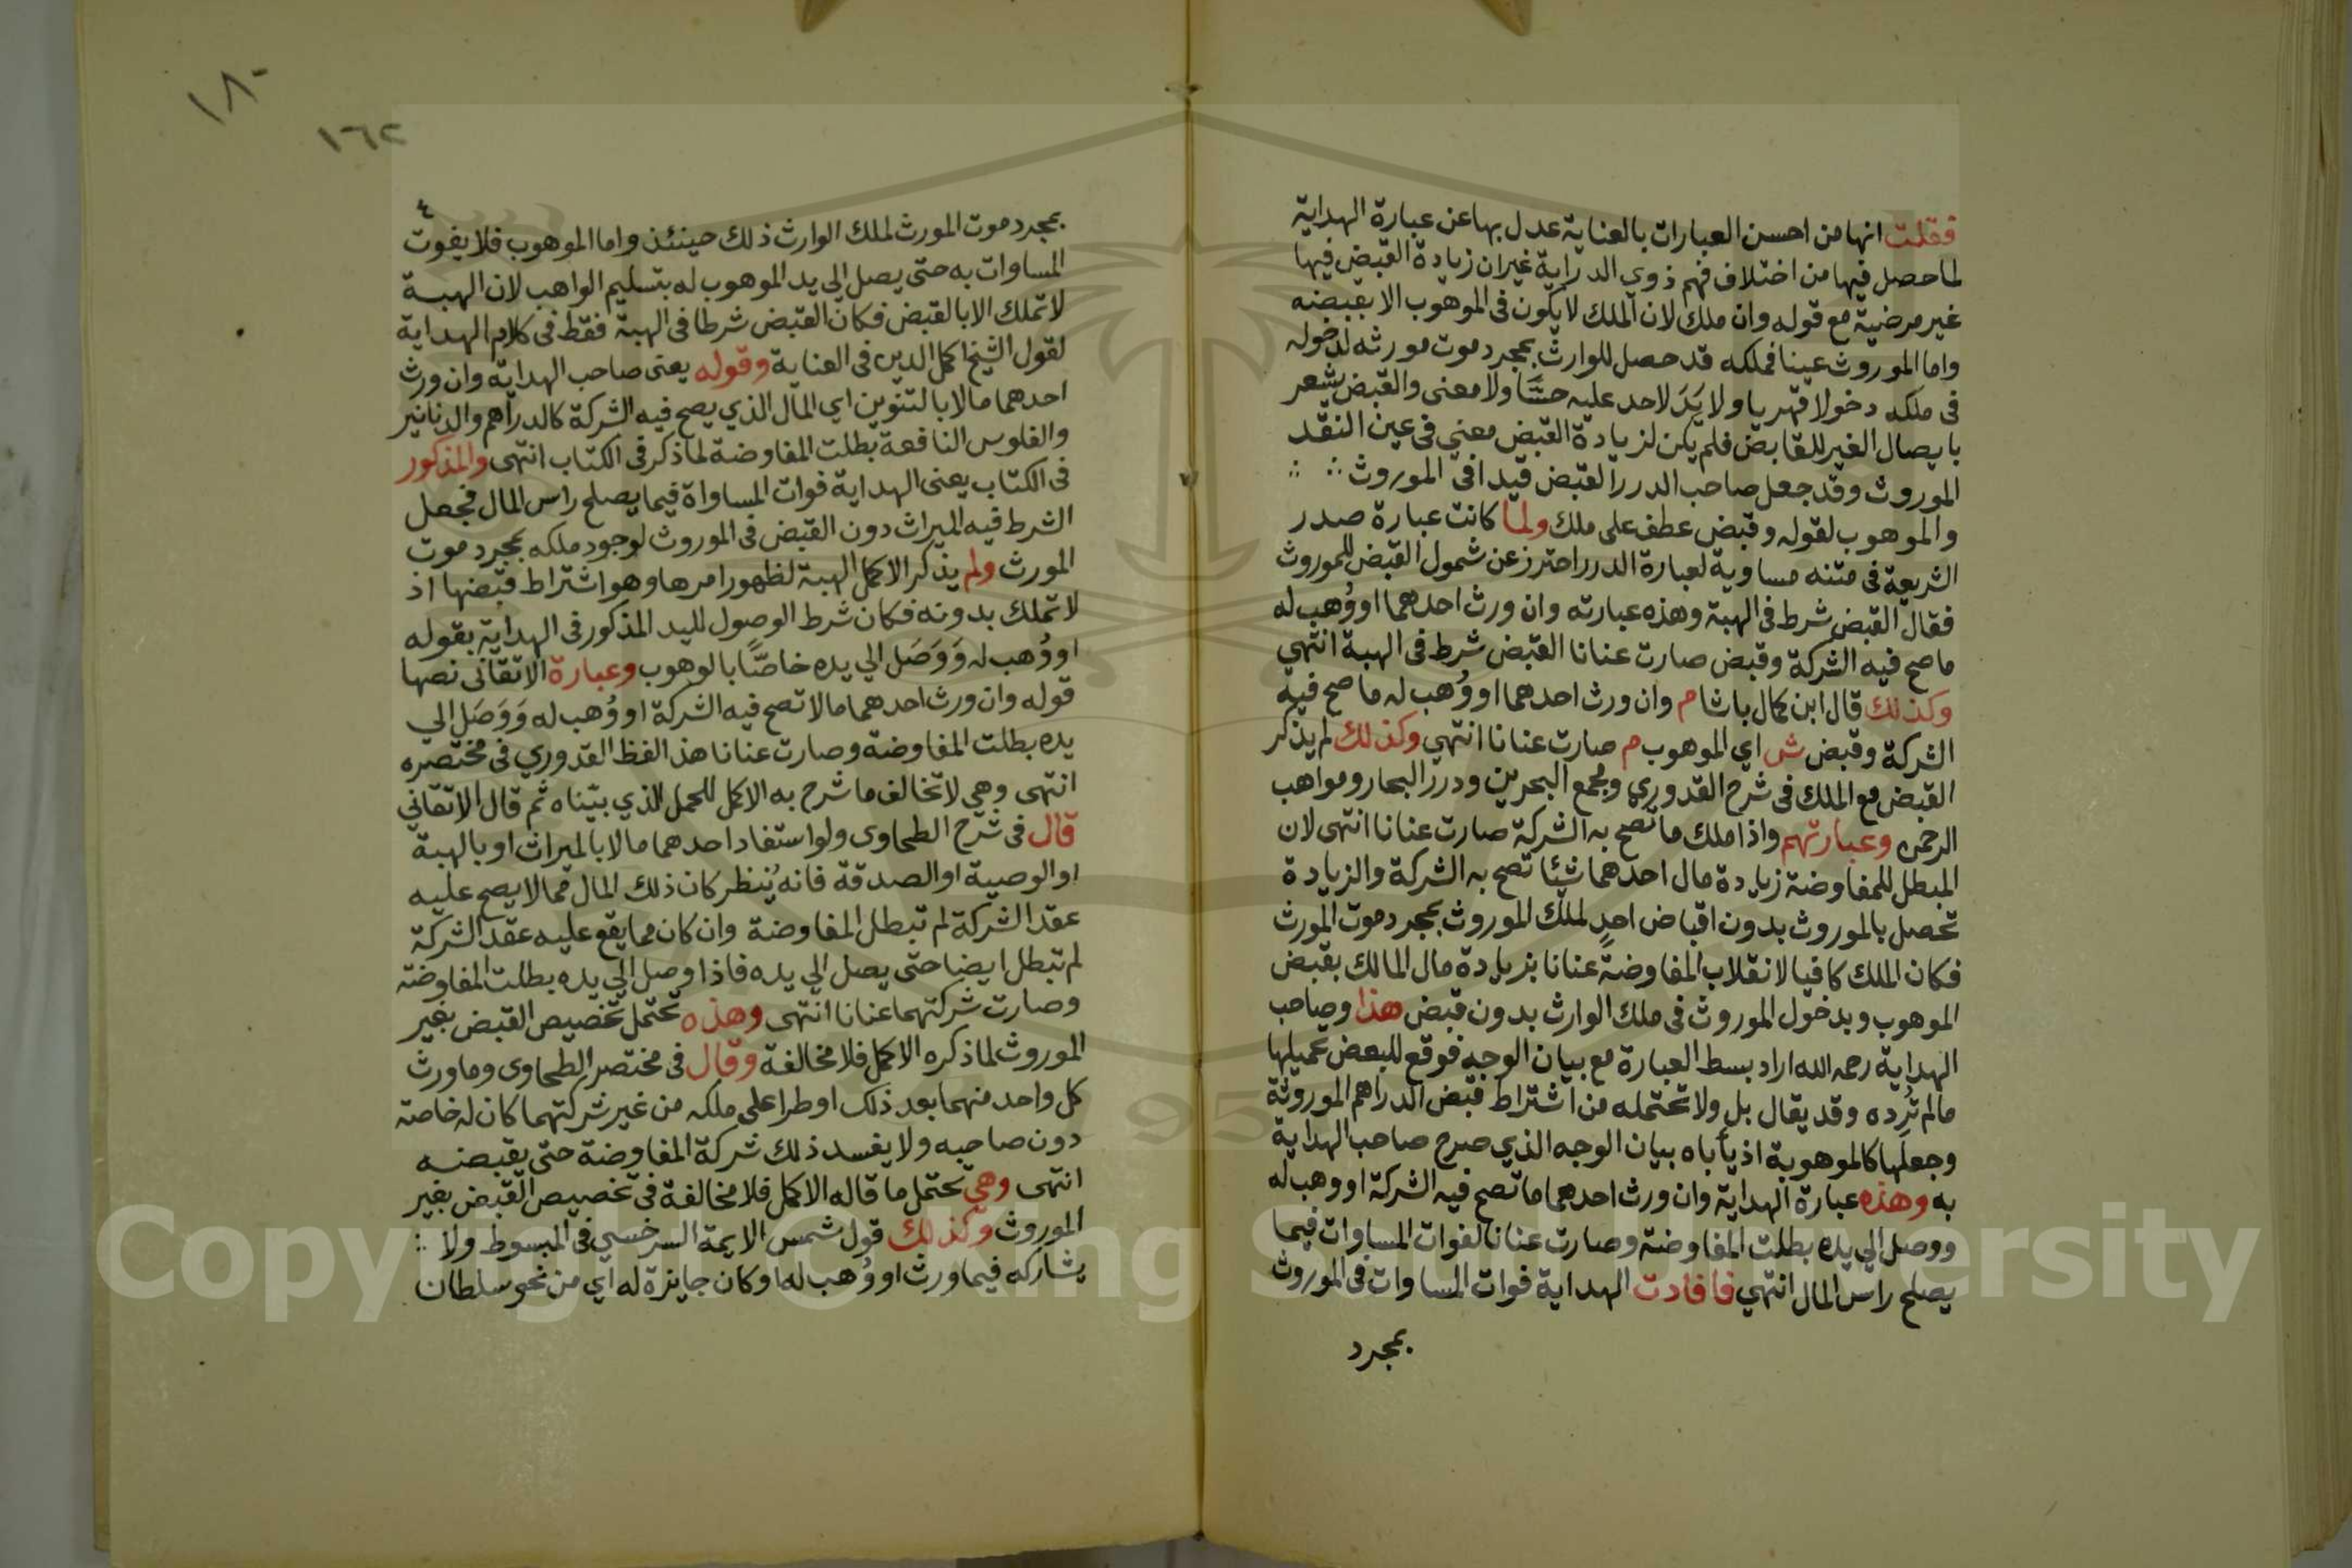 فقلت انها من احسن العبارات بالعناية عدل بها عن عبارة الهداية
لما حصل فيها من اختلاف فهم ذوي الدراية غير ان زيادة القبض فيها
غير مرضية مع قوله وان ملك لان الملك لا يكون فى الموهوب الا بقبضه
واما الموروث عينا فملكه قد حصل للوارث بمجرد موت مورثه لدخوله
فى ملكه دخولا قهريا ولا يَدَ لاحد عليه حسًّا ولا معنى والقبض يشعر
بايصال الغير للقابض فلم يكن لزيادة القبض معني فى عين النقد
الموروث وقد جعل صاحب الدرر القبض قيدا فى الموروث
والموهوب لقوله وقبض عطف على ملك ولما كانت عبارة صدر
الشريعة فى متنه مساوية لعبارة الدرر احترز عن شمول القبض للموروث
فقال القبض شرط فى الهبة وهذه عبارته وان ورث احدهما او وُهب له
ما صح فيه الشركة وقبض صارت عنانا القبض شرط فى الهبة انتهي
وكذلك قال ابن كمال باشا م وان ورث احدهما او وُهب له ما صح فيه
الشركة وقبض ش اي الموهوب م صارت عنانا انتهي وكذلك لم يذكر
القبض مع الملك فى شرح القدوري ومجمع البحرين ودرر البحار ومواهب
الرحمن وعبارتهم واذا ملك ما تصح به الشركة صارت عنانا انتهى لان
المبطل للمفاوضة زيادة مال احدهما شيئا تصح به الشركة والزيادة
تحصل بالموروث بدون اقباض احدٍ لملك الموروث بمجرد موت المورث
فكان الملك كافيا لانقلاب المفاوضةِ عنانا بزيادة مال المالك بقبض
الموهوب وبدخول الموروث فى ملك الوارث بدون قبض هذا وصاحب
الهداية رحمه الله اراد بسط العبارة مع بيان الوجه فوقع للبعض تحميلها
ما لم تُرده وقد يقال بل ولا تحتمله من اشتراط قبض الدراهم الموروثة
وجعلها كالموهوبة اذ يأباه بيان الوجه الذي صرح صاحب الهداية
به وهذه عبارة الهداية وان ورث احدهما ما تصح فيه الشركة او وهب له
ووصل الي يده بطلت المفاوضة وصارت عنانا لفوات المساوات فيما
يصلح راس المال انتهي فافادت الهداية فوات المساوات فى الموروث
بمجرد
١٨٠
١٦٢
٤
بمجرد موت المورث لملك الوارث ذلك حينئذ واما الموهوب فلا يفوت
المساوات به حتى يصل الي يد الموهوب له بتسليم الواهب لان الهبة
لا تملك الا بالقبض فكان القبض شرطا فى الهبة فقط فى كلام الهداية
لقول الشيخ اكمل الدين فى العناية وقوله يعنى صاحب الهداية وان ورث
احدهما مالا بالتنوين اي المال الذي يصح فيه الشركة كالدراهم والدنانير
والفلوس النافعة بطلت المفاوضة لما ذكر فى الكتاب انتهى والمذكور
فى الكتاب يعنى الهداية فوات المساواة فيما يصلح راس المال فجعل
الشرط فيه الميراث دون القبض فى الموروث لوجود ملكه بمجرد موت
المورث ولم يذكر الاكمل الهبة لظهور امرها وهو اشتراط قبضها اذ
لا تملك بدونه فكان شرط الوصول لليد المذكور فى الهداية بقوله
او وُهب له وَوَصَل الي يده خاصًّا بالوهوب وعبارة الاتقانى نصها
قوله وان ورث احدهما مالا تصح فيه الشركة او وُهب له وَوَصَل الي
يده بطلت المفاوضة وصارت عنانا هذ الفظ القدوري فى مختصره
انتهى وهي لا تخالف ما شرح به الاكمل للحمل الذي بيّناه ثم قال الاتقاني
قال فى شرح الطحاوى ولو استفاد احدهما مالا بالميراث او بالهبة
او الوصية او الصدقة فانه يُنظر كان ذلك المال مما لا يصح عليه
عقد الشركة لم تبطل المفاوضة وان كان مما يقع عليه عقد الشركة
لم تبطل ايضا حتى يصل الي يده فاذا وصل الي يده بطلت المفاوضة
وصارت شركتهما عنانا انتهى وهذه تحتمل تخصيص القبض بغير
الموروث لما ذكره الاكمل فلا مخالفة وقال فى مختصر الطحاوى وما ورث
كل واحد منهما بعد ذلك او طرا على ملكه من غير شركتهما كان له خاصة
دون صاحبه ولا يفسد ذلك شركة المفاوضة حتى يقبضه
انتهى وهي تحتمل ما قاله الاكمل فلا مخالفة فى تخصيص القبض بغير
الموروث وكذلك قول شمس الايمة السرخسي فى المبسوط ولا
يشاركه فيما ورث او وُهب له او كان جايزة له اي من نحو سلطان
Copyright © King Saud University